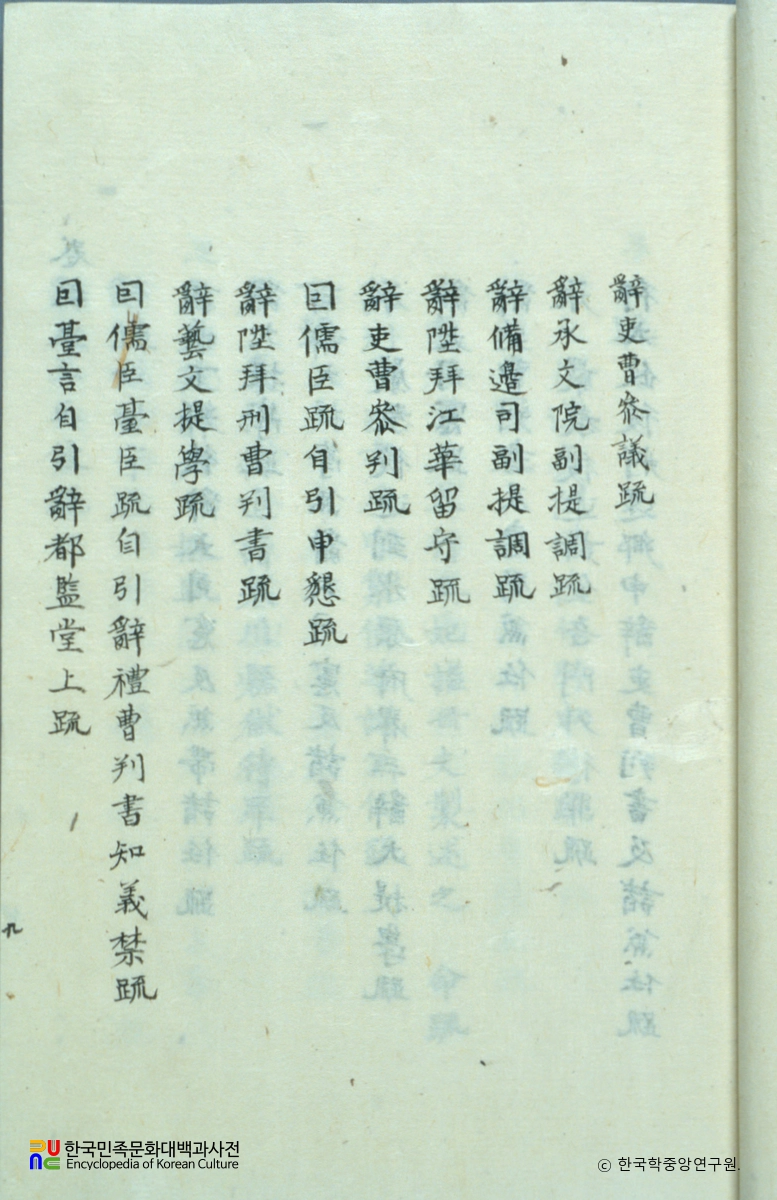 辭吏曹參議疏
辭承文院副提調疏
辭備邊司副提調疏
辭陞拜江華留守疏
辭吏曹參判疏
因儒臣疏自引申懇疏
辭陞拜刑曹判書疏
辭藝文提學疏
因儒臣臺臣疏自引辭禮曹判書知義禁疏
因臺言自引辭都監堂上疏
九
한국민족문화대백과사전
Encyclopedia of Korean Culture
ⓒ 한국학중앙연구원.